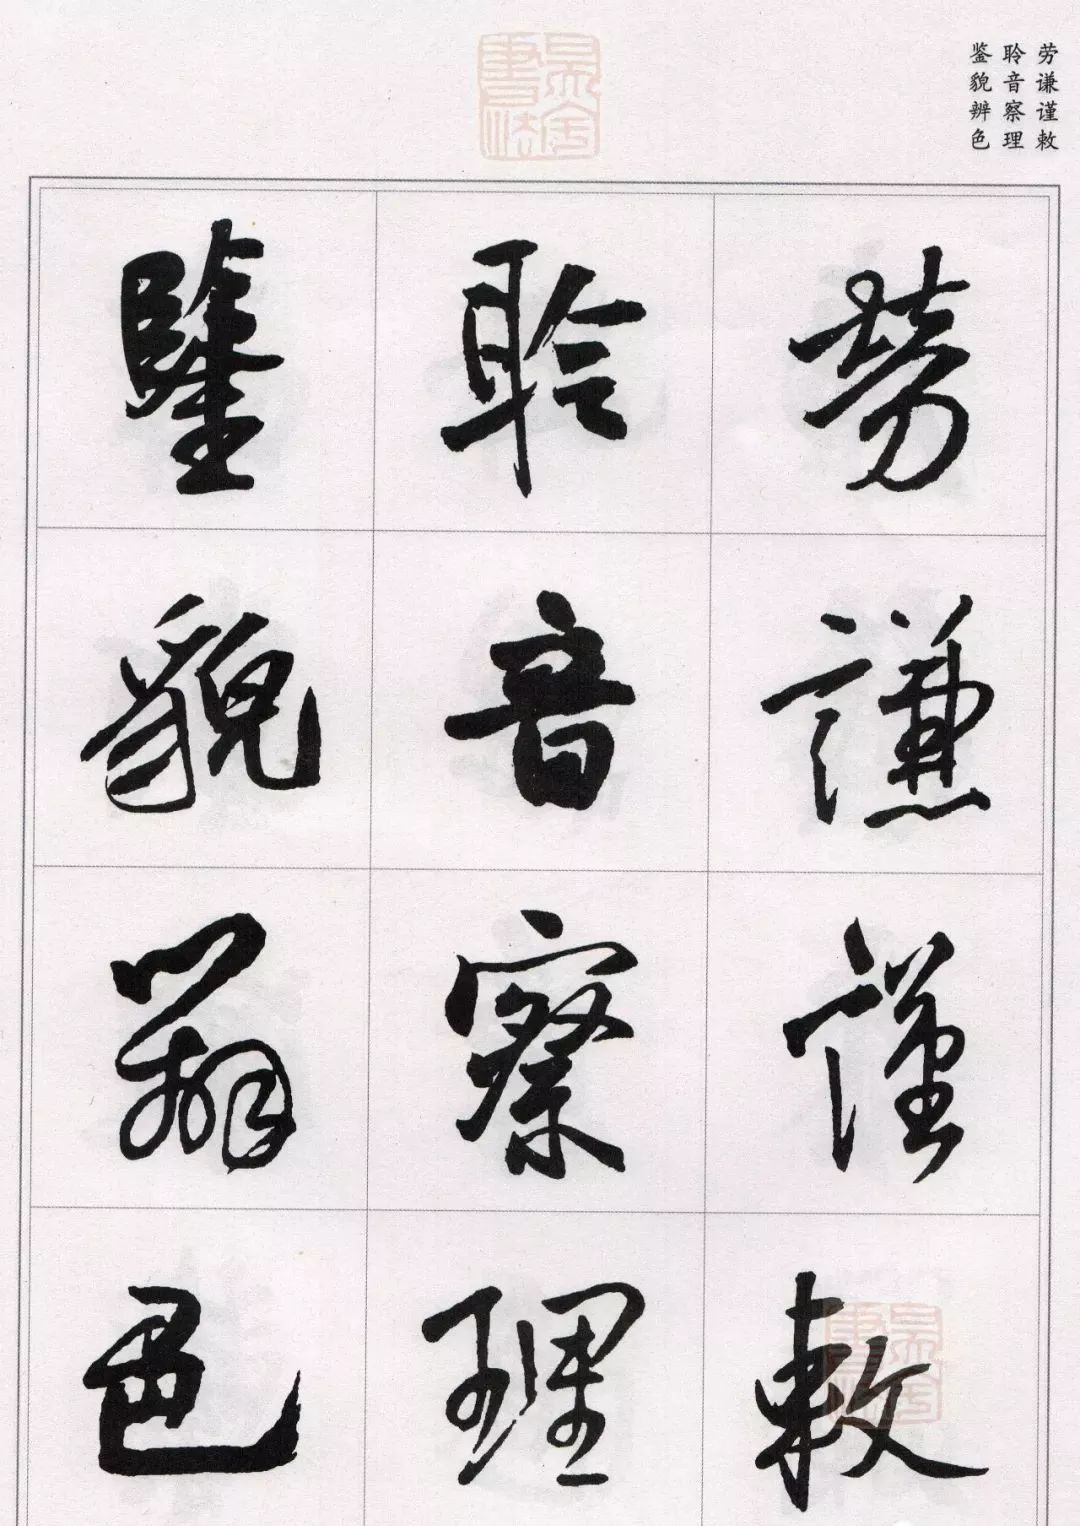 劳谦谨敕
聆音察理
鉴貌辨色
勞謙謹敕
聆音察理
鑒貌辨色